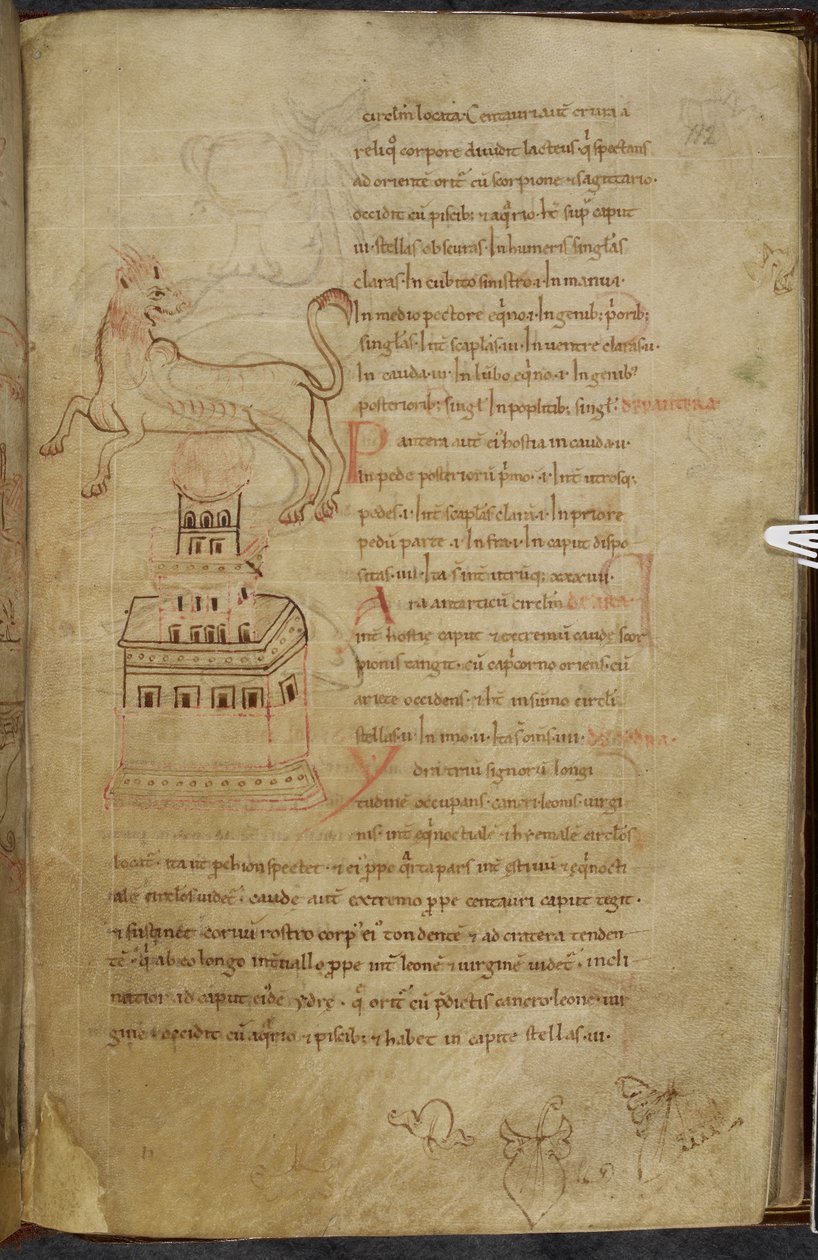 circlm̄ locata. Centauri aut̄ crura a
reliq̊ corpore diuidit lacteus. qͥ spectans
ad orientē orit̄ cū scorpione ⁊ sagittario.
occidit cū piscib; ⁊ aqͣrio. h̄t sup̄ caput
iii. stellas obscuras. In humeris singlas
claras. In cubito sinistro .i. In manu .i.
In medio pectore eqͥno .i. In genib; p̄orib;
singlas. Int̄ scaplas .iii. In uentre claras .ii.
In cauda .iii. In lūbo eqͥno .i. In genib;
posteriorib; singł. In poplitib; singł. de pantera
Pantera aut̄ ei' hostia in cauda .ii.
In pede posteriorū p̄mo .i. Int̄ utrosq;
pedes .i. Int̄ scaplas clara .i. In priore
pedū parte .i. In .i. In caput dispo
sitas .iii. Ita s̄ int̄ utrūq; xxxvii.
Ara antarticū circlm̄ de ara.
int̄ hostie caput ⁊ extremū caude scor
pionis tangit. cū capͥcorno oriens. cū
ariete occidens. ⁊ h̄t in sūmo circli
stellas .ii. In imo .ii. Ita s̄ om̄s .iiii. de ydra.
Ydra triū signorū longi
tudinē occupans. cancri. leonis. uirgi
nis. int̄ eqͥnoctialē ⁊ hyemalē circlos
locat̄. ita ut pchion spectet. ⁊ ei' ppe qͣrta pars int̄ ęstiuū ⁊ ęqͥnocti
alē circlos uidet̄. caude aut̄ extremo ppe centauri caput tegit.
⁊ sustinet coruū rostro corp' ei' tondentē ⁊ ad cratera tenden
tē. q̊ ab eo longo int̄uallo ppe int̄ leonē ⁊ uirginē uidet̄. incli
natior ad caput ei'dē ydrę. q̊ orit̄ cū p̄dictis cancro. leone. uir
gine ⁊ occidit cū aqͣrio ⁊ piscib; ⁊ habet in capite stellas .iii.
112